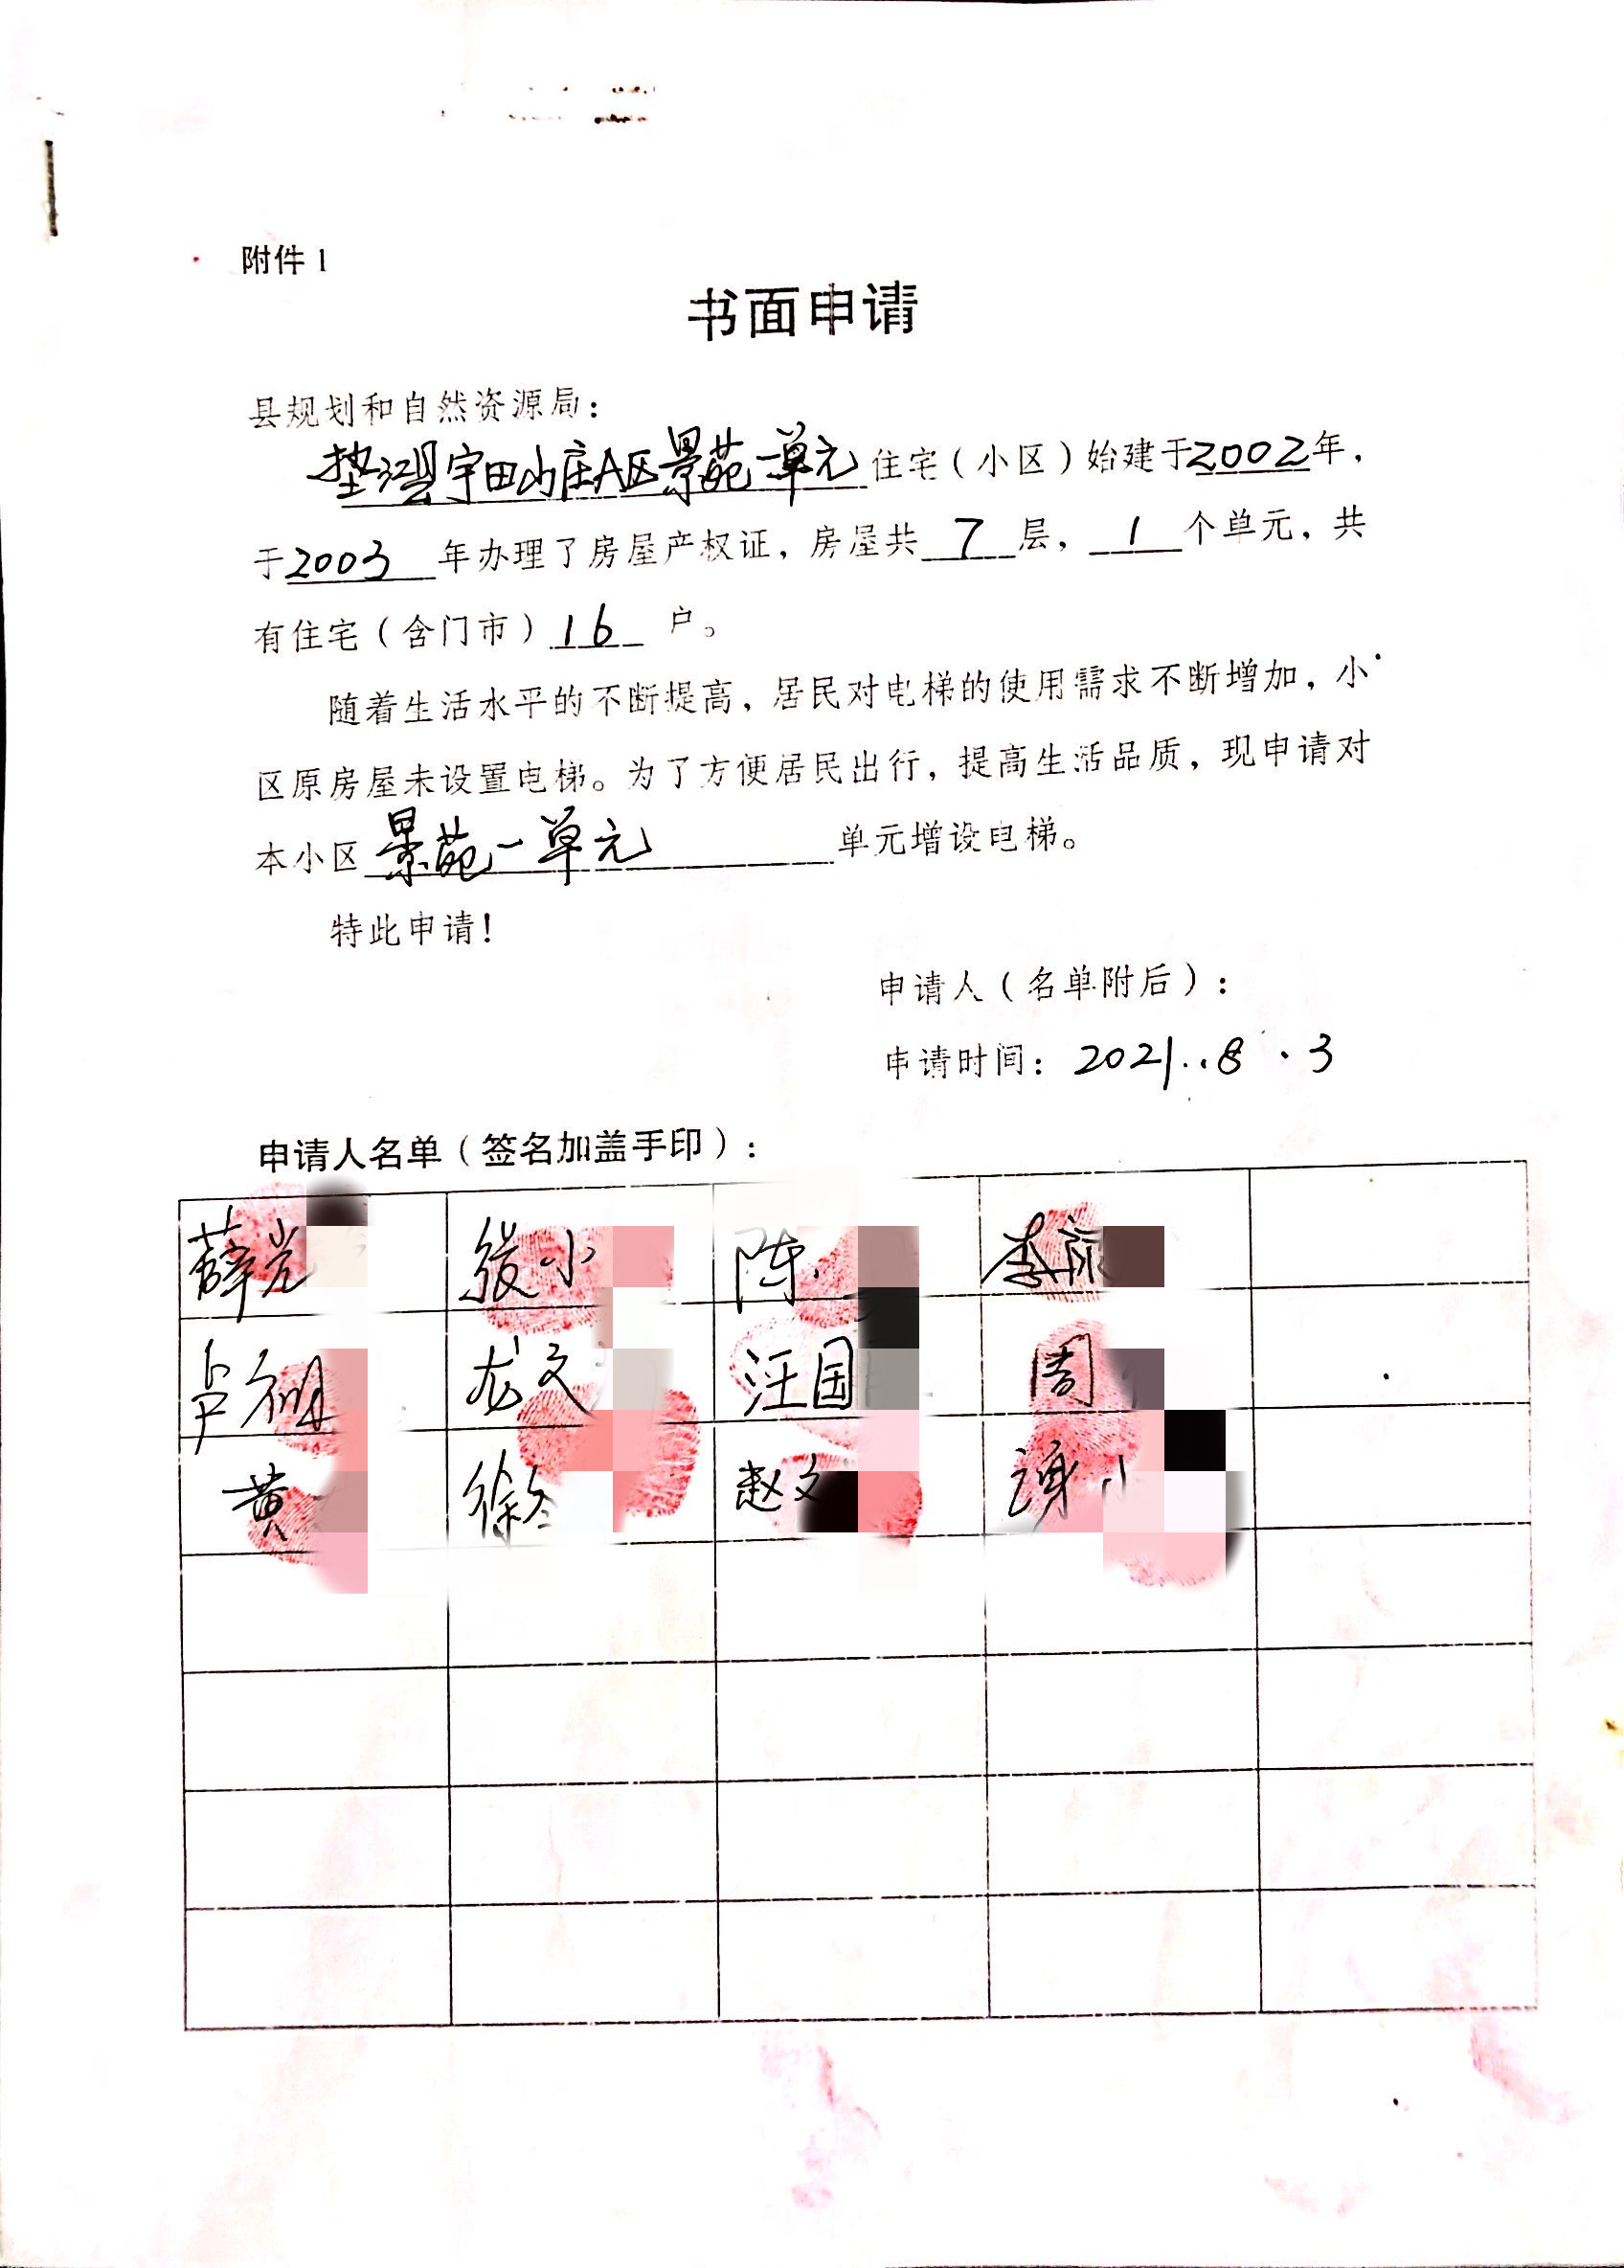 附件1
书面申请
县规划和自然资源局：
垫江县宇田山庄A区景苑一单元住宅（小区）始建于2002年，
于2003年办理了房屋产权证，房屋共7层，1个单元，共
有住宅（含门市）16户。
随着生活水平的不断提高，居民对电梯的使用需求不断增加，小
区原房屋未设置电梯。为了方便居民出行，提高生活品质，现申请对
本小区景苑一单元单元增设电梯。
特此申请！
申请人（名单附后）：
申请时间：2021..8.3
申请人名单（签名加盖手印）：
薛 张小 陈 李
卢 龙文 汪国 周
黄 徐 赵文 谢小